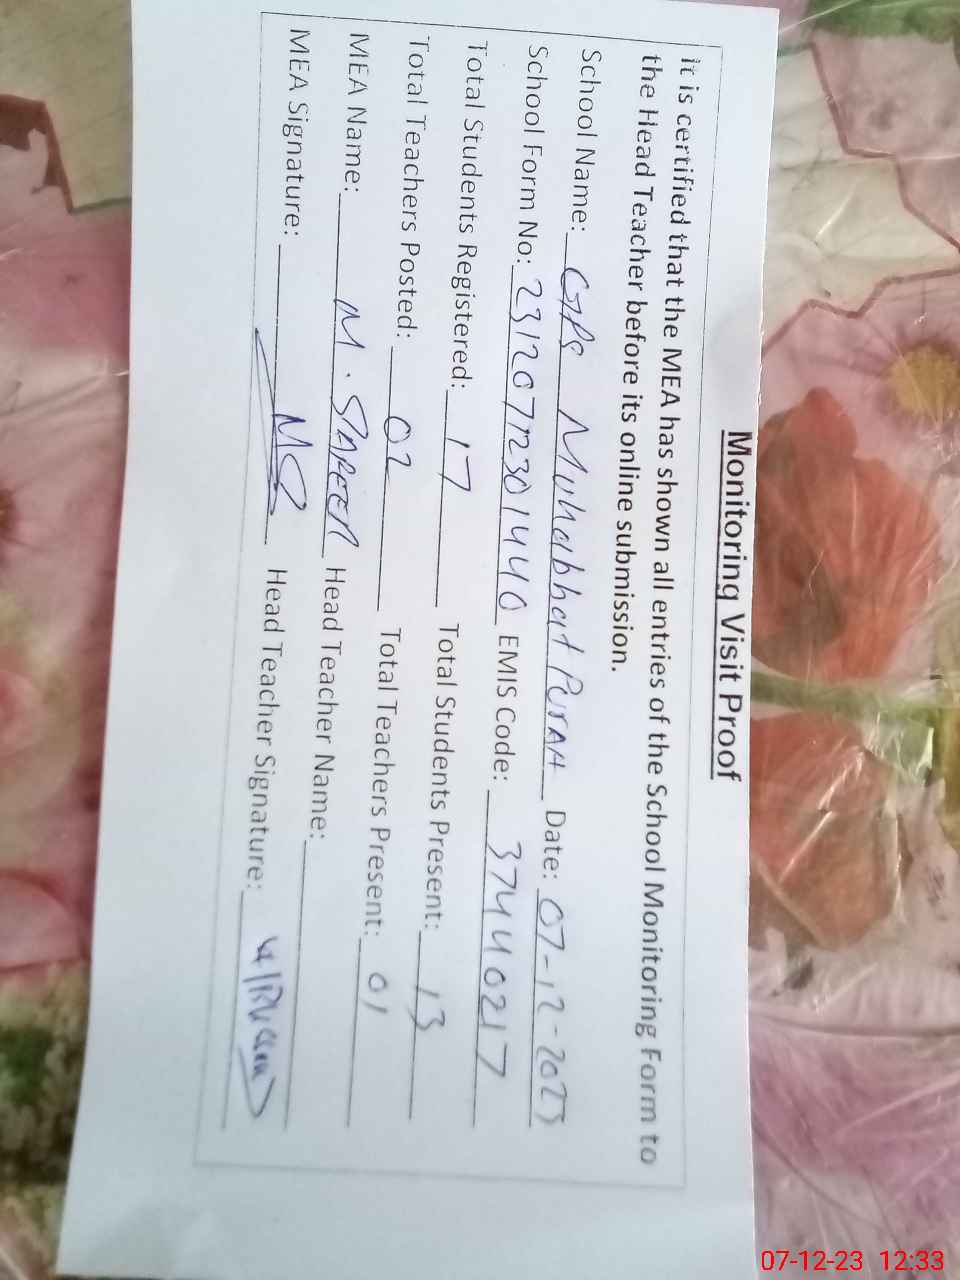 Monitoring Visit Proof
It is certified that the MEA has shown all entries of the School Monitoring Form to
the Head Teacher before its online submission.
School Name: GPS Muhabbat Purah Date: 07-12-2023
School Form No: 23120712301440 EMIS Code: 37440217
Total Students Registered: 17 Total Students Present: 13
Total Teachers Posted: 02 Total Teachers Present: 01
MEA Name: M. Head Teacher Name:
MEA Signature: MS Head Teacher Signature:
07-12-23 12:33